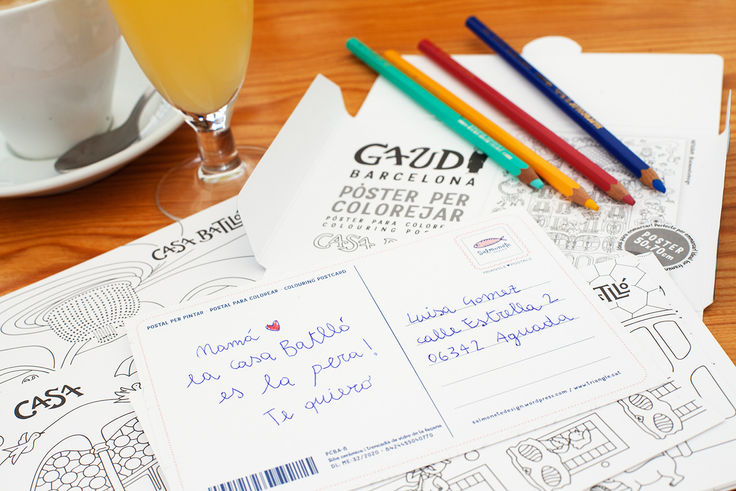 GAUDI
BARCELONA
PÒSTER PER
COLOREJAR
PÓSTER PARA COLOREAR
COLOURING POSTER
CASA
CASA BATLLÓ
POSTER
50x70cm
BATLLÓ
CASA
POSTAL PER PINTAR · POSTAL PARA COLOREAR · COLOURING POSTCARD
Mamá
la casa Batlló
es la pera!
Te quiero
Salmonete
Luisa Gomez
calle Estrella 2
06342 Aguada
salmonetedesign.wordpress.com / www.triangle.cat
PCBA-8
DL ME-32/2020 · 8424295040770